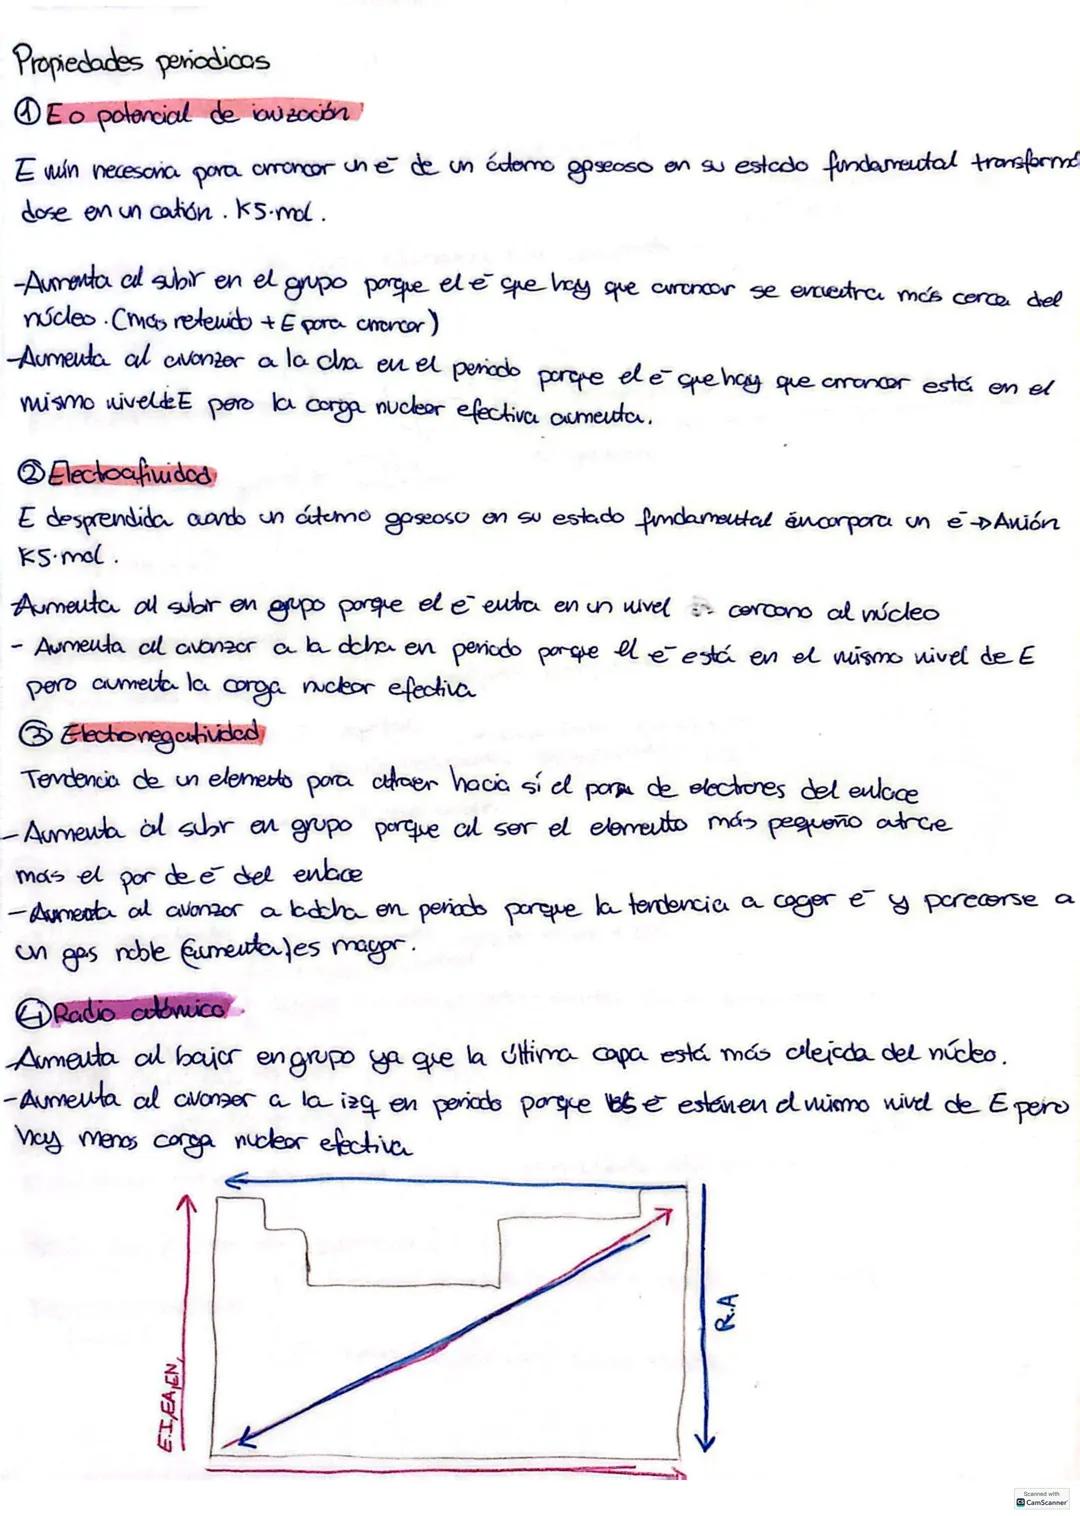 Propiedades periodicas
① E o potencial de ionización
E mín necesaria para arrancar un e⁻ de un átomo gaseoso en su estado fundamental transformán
dose en un catión. KJ·mol.
-Aumenta al subir en el grupo porque el e⁻ que hay que arrancar se encuentra más cerca del
núcleo. (más retenido + E para arrancar)
-Aumenta al avanzar a la dha en el periodo porque el e⁻ que hay que arrancar está en el
mismo nivel de E pero la carga nuclear efectiva aumenta.
② Electroafinidad
E desprendida cuando un átomo gaseoso en su estado fundamental incorpora un e⁻ → Anión
KJ·mol.
-Aumenta al subir en grupo porque el e⁻ entra en un nivel cercano al núcleo
- Aumenta al avanzar a la dcha en periodo porque el e⁻ está en el mismo nivel de E
pero aumenta la carga nuclear efectiva
③ Electronegatividad
Tendencia de un elemento para atraer hacia sí el par de electrones del enlace
- Aumenta al subir en grupo porque al ser el elemento más pequeño atrae
mas el par de e⁻ del enlace
- Aumenta al avanzar a la dcha en periodo porque la tendencia a coger e⁻ y parecerse a
un gas noble (aumenta) es mayor.
④ Radio atómico.
-Aumenta al bajar en grupo ya que la última capa está más alejada del núcleo.
-Aumenta al avanzar a la izq en periodo porque los e⁻ están en el mismo nivel de E pero
hay menos carga nuclear efectiva
E.I, EA, EN,
R.A
Scanned with
CS CamScanner